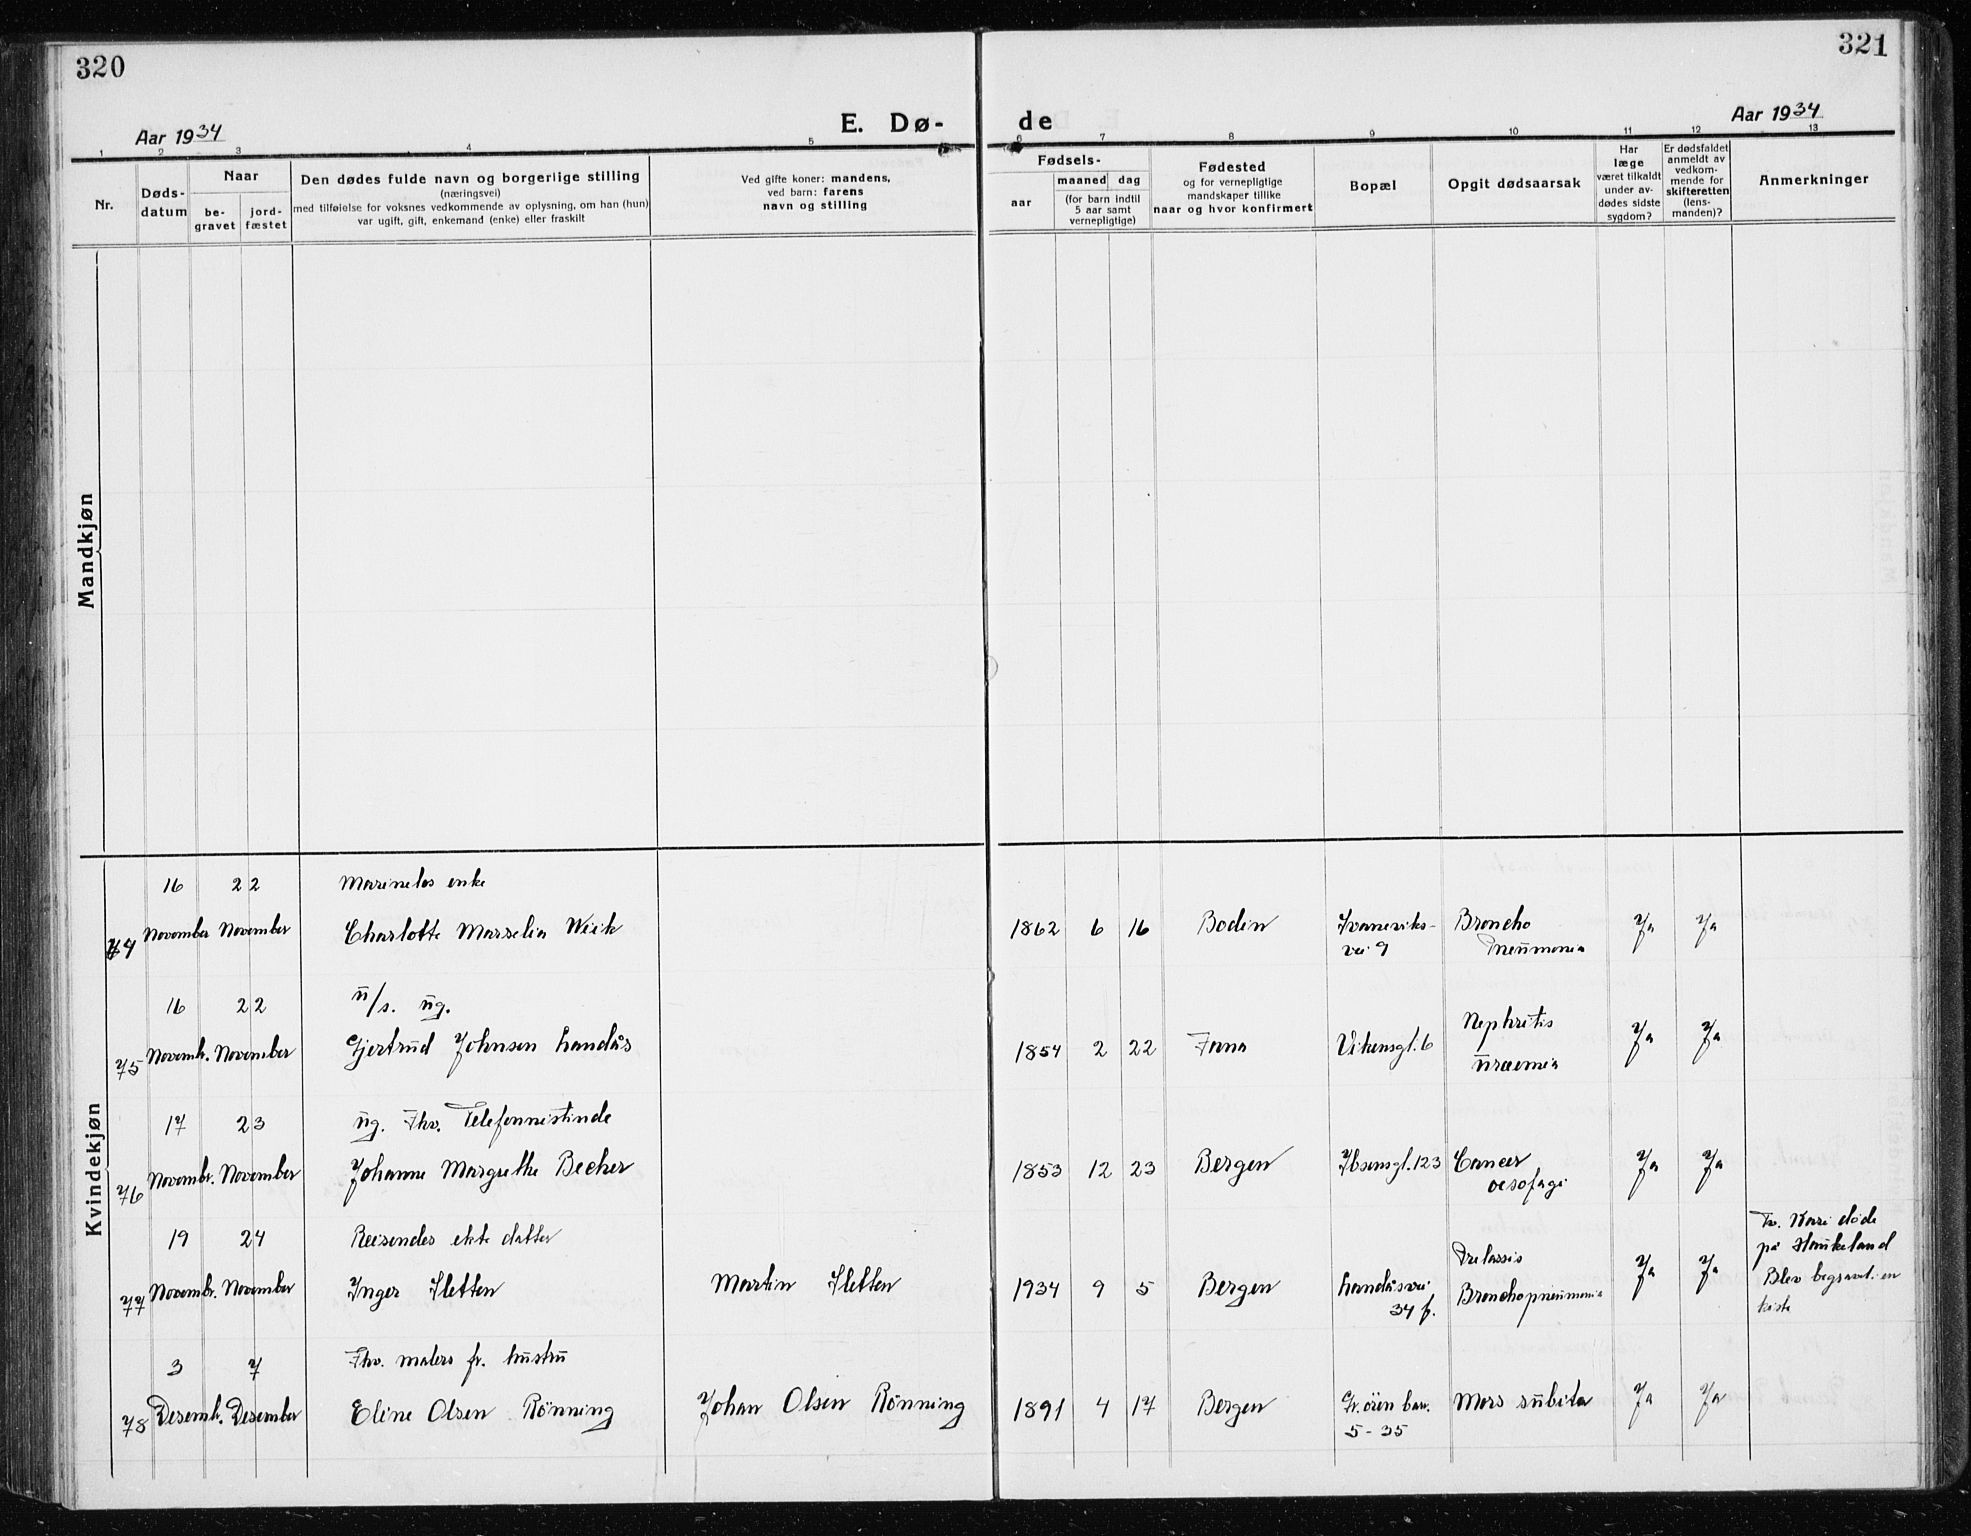 320
321
Aar 1934
E. Dø-
de
Aar 1934
1 2 3 4 5 6 7 8 9 10 11 12 13
Nr.
Døds-
datum
Naar
be-
gravet
jord-
fæstet
Den dødes fulde navn og borgerlige stilling
(næringsvei)
med tilføielse for voksnes vedkommende av oplysning, om han (hun)
var ugift, gift, enkemand (enke) eller fraskilt
Ved gifte koner: mandens,
ved barn: farens
navn og stilling
Fødsels-
aar
maaned dag
(for barn indtil
5 aar samt
vernepligtige)
Fødested
og for vernepligtige
mandskaper tillike
naar og hvor konfirmert
Bopæl
Opgit dødsaarsak
Har
læge
været tilkaldt
under av-
dødes sidste
sygdom?
Er dødsfaldet
anmeldt av
vedkom-
mende for
skifteretten
(lens-
manden)?
Anmerkninger
Mandkjøn
Kvindekjøn
16 22 enke
74 November November Charlotte Marselia Wiik 1862 6 16 Bodin Ja Ja
vei 9
Broncho
Pneumonia
16 22 u/s. ug.
75 Novemb. November Gjertrud Johnsen Landås 1854 2 22 Fana Vikensgt. 6 Ja Ja
Nephritis
uraemia
17 23 ug. Fhv. Telefonnistinde
76 Novemb. November Johanne Margrethe Becher 1853 12 23 Bergen Ibsensgt. 123 Cancer Ja Ja
oesofagi
19 24 Reisendes ekte datter
77 Novemb. November Inger Sletten Martin Sletten 1934 9 5 Bergen Landåsvei Ja Ja
34 f.
Bronchopneumonia
Kari døde
på Haukeland
Blev begravet i en
kiste
3 7 Fhv. malers fr. hustru
78 Desemb. Desember Eline Olsen Rønning Johan Olsen Rønning 1891 4 17 Bergen Mors subita Ja Ja
5-35